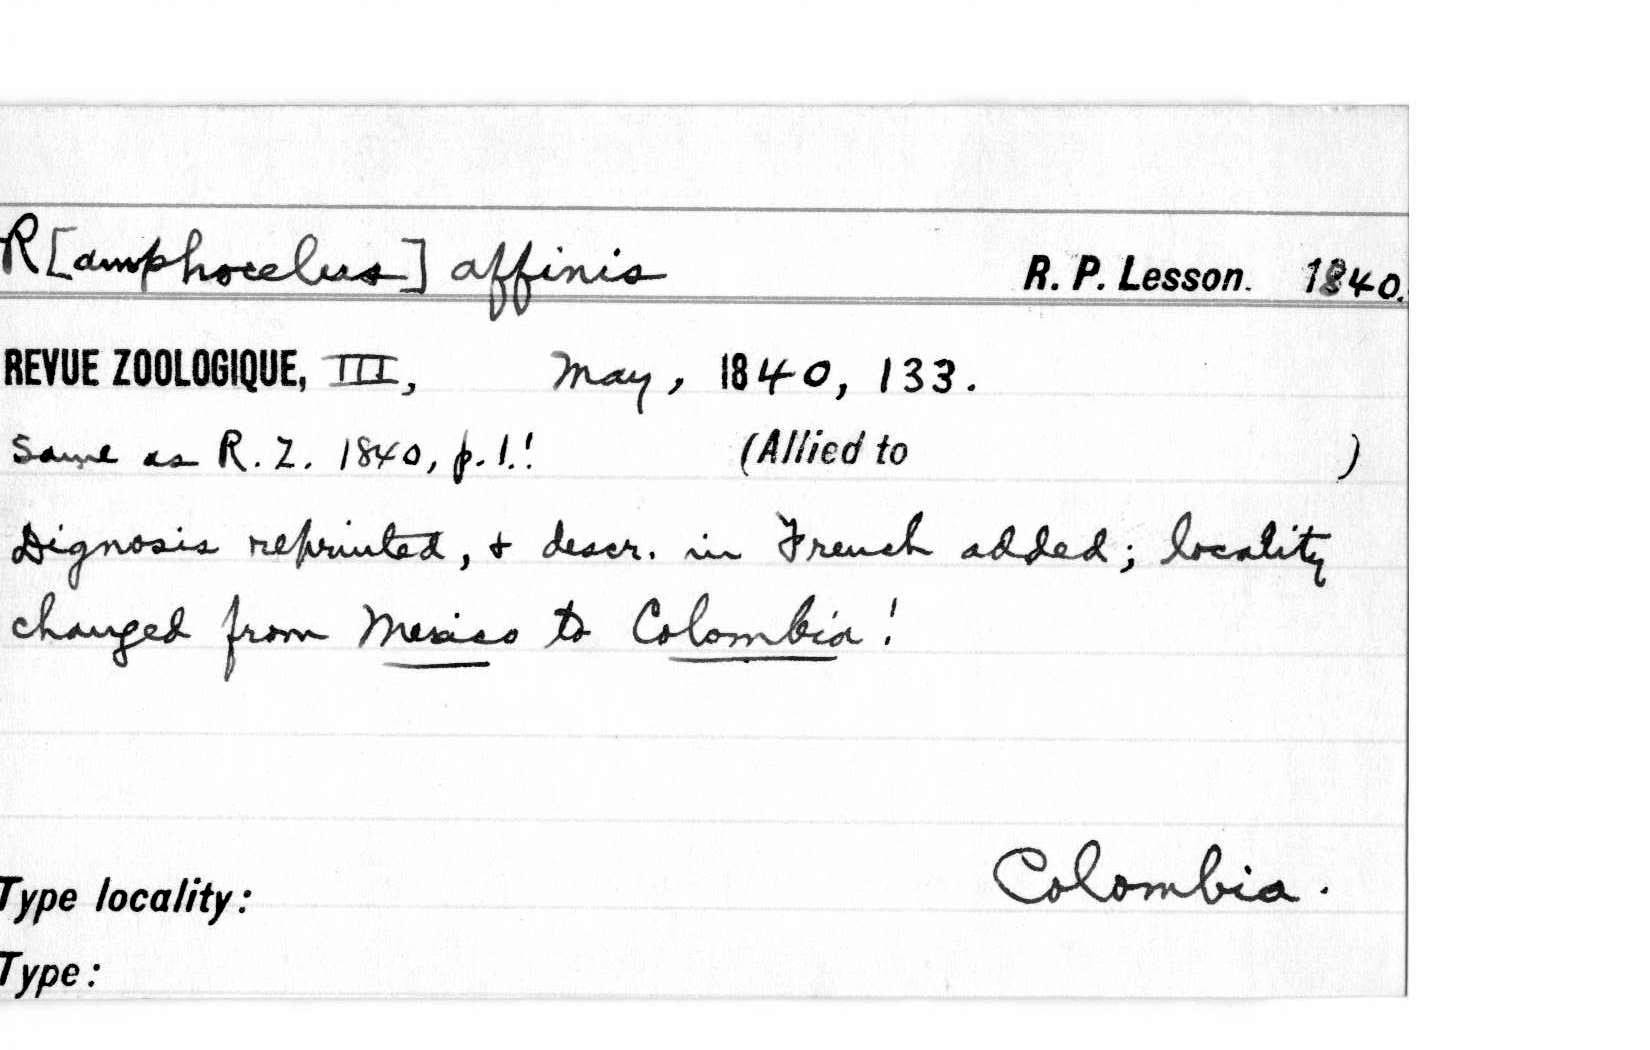 R[amphocelus] affinis R. P. Lesson. 1840.
REVUE ZOOLOGIQUE, III, May, 1840, 133.
Same as R. Z. 1840, p. 1.! (Allied to )
Dignosis reprinted, & descr. in French added; locality
changed from Mexico to Colombia!
Colombia.
Type locality:
Type: